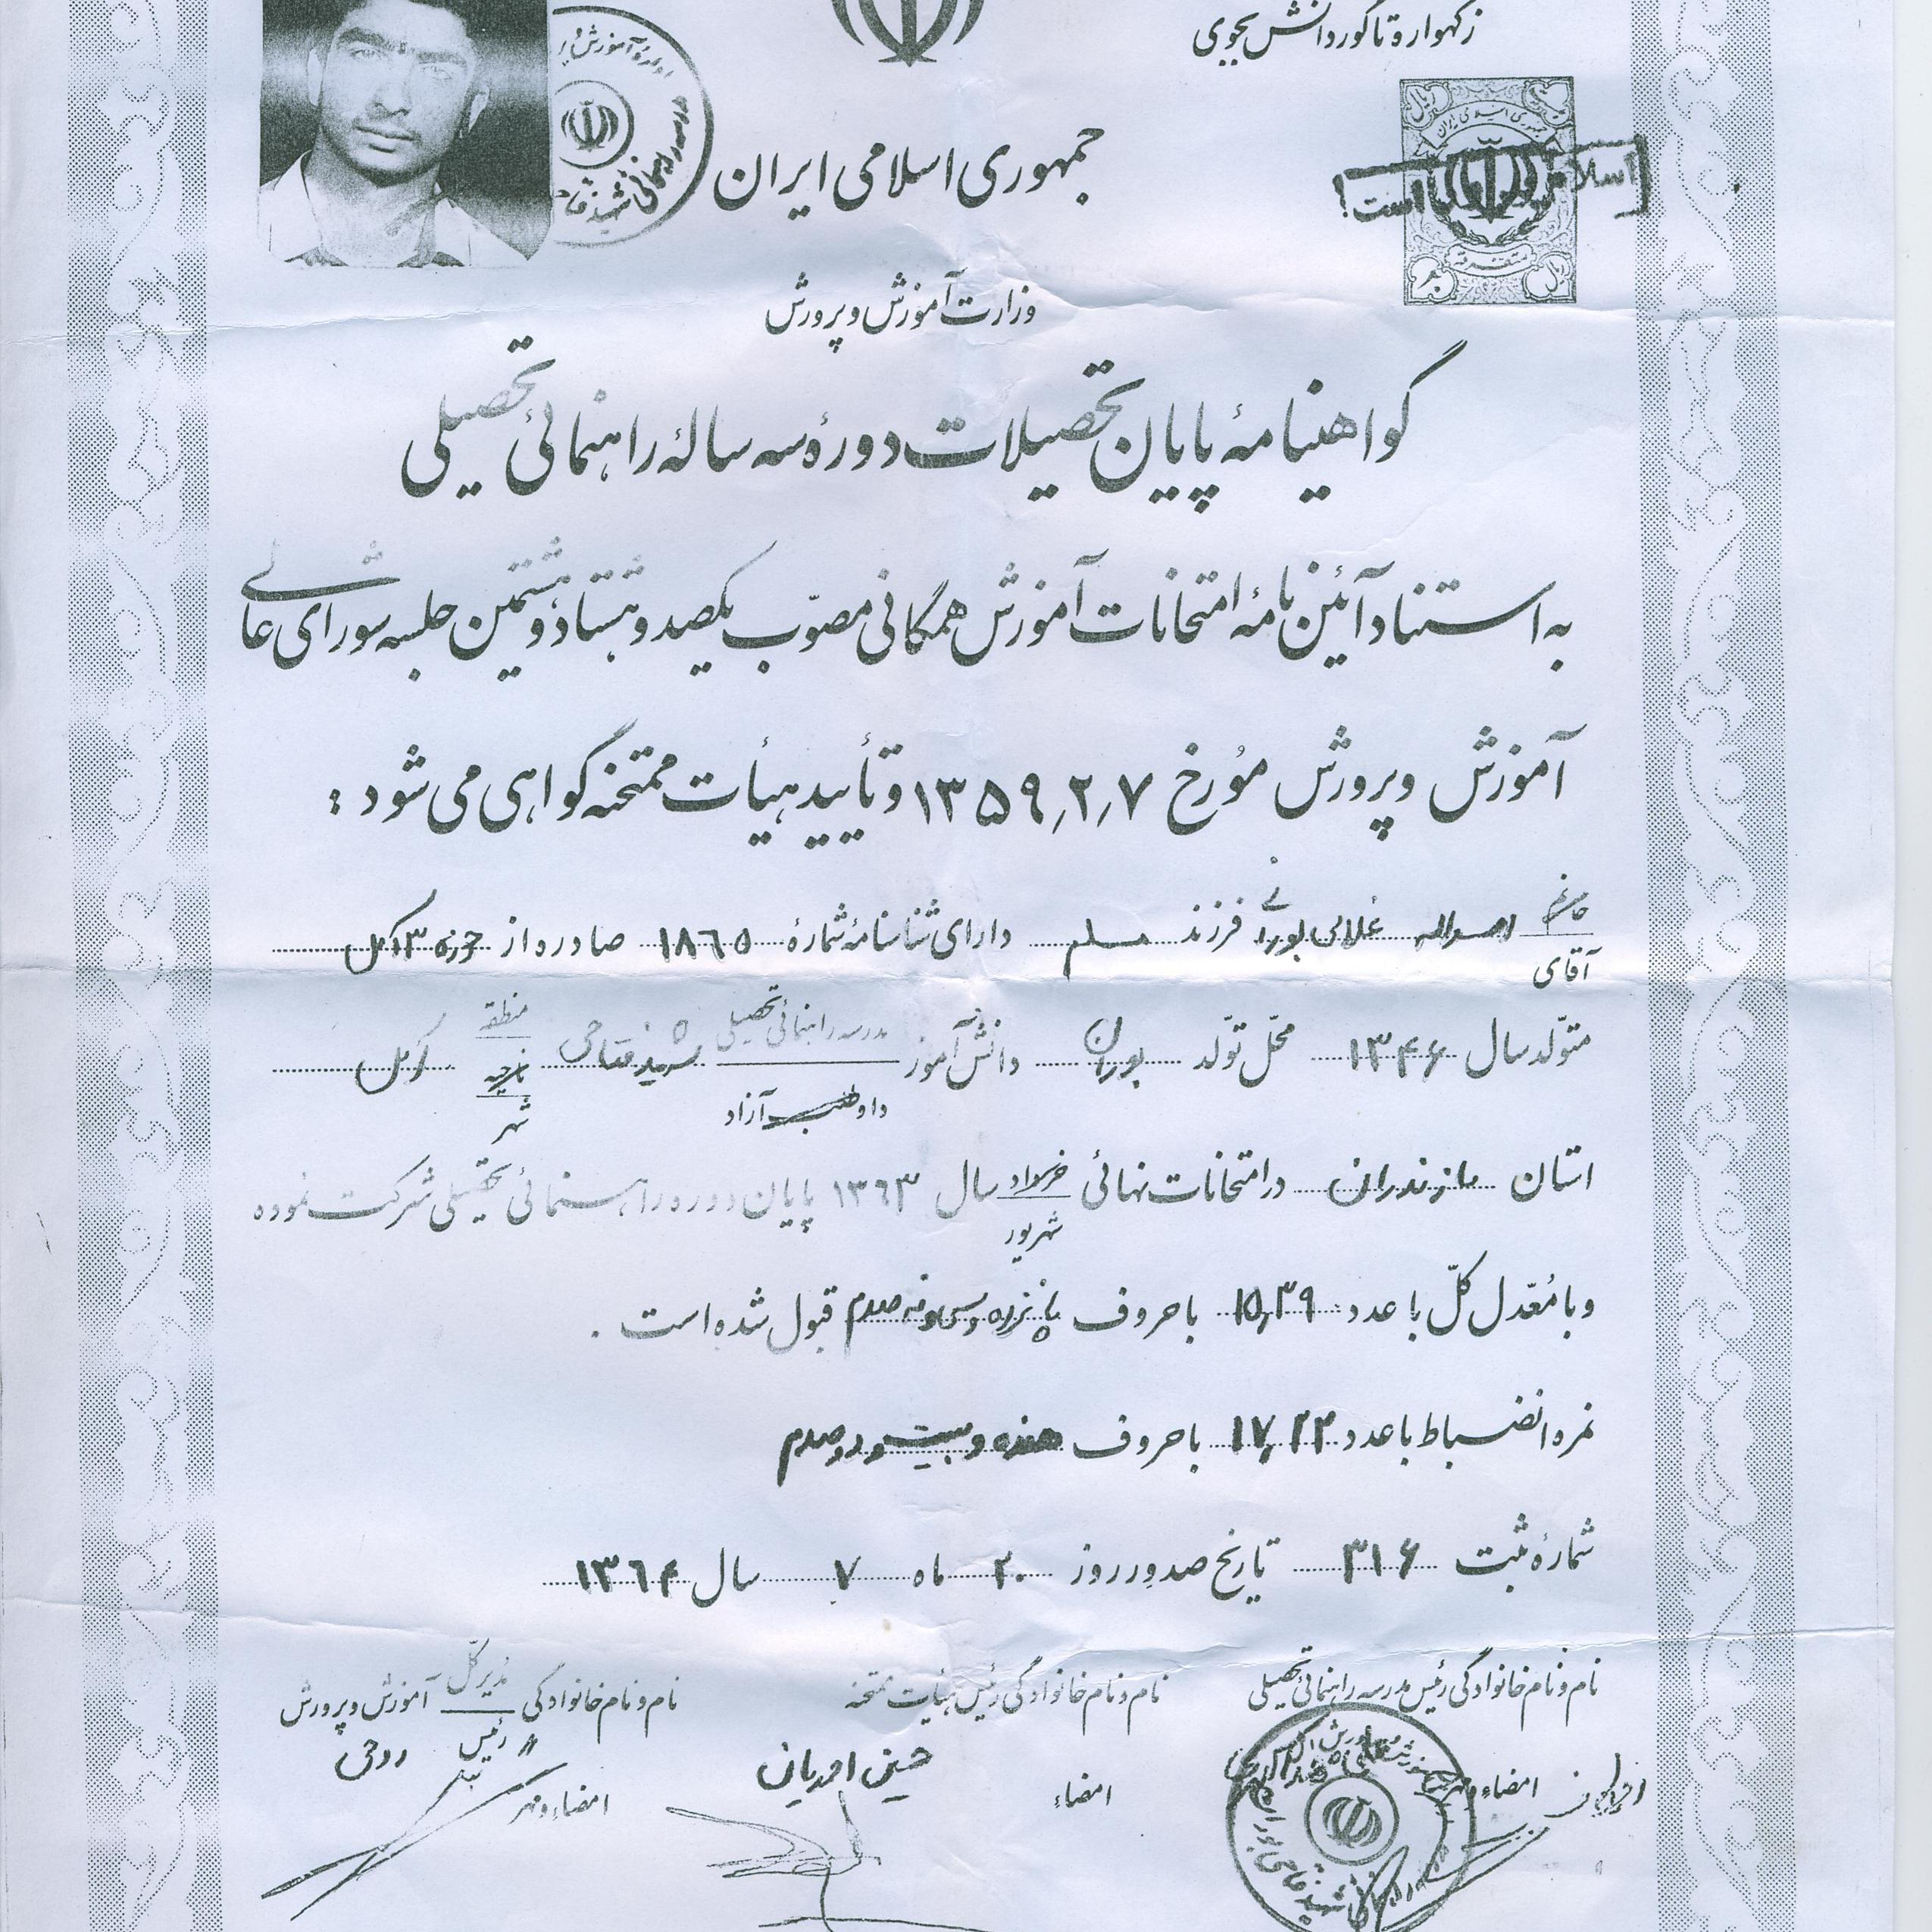 زگهواره تا گور دانش بجوی
جمهوری اسلامی ایران
وزارت آموزش و پرورش
گواهینامهٔ پایان تحصیلات دورهٔ سه سالهٔ راهنمائی تحصیلی
به استناد آئین نامهٔ امتحانات آموزش همگانی مصوّب یکصد و هشتاد و هشتمین جلسه شورای عالی
آموزش و پرورش مورخ ۱۳۵۹٫۲٫۷ و تأیید هیأت ممتحنه گواهی می شود :
خانم
آقای
فرزند مسلم دارای شناسنامه شمارهٔ ۱۸۶۵ صادره از حوزه ۳
متولّد سال ۱۳۴۶ محلّ تولّد بوران دانش آموز مدرسه راهنمائی تحصیلی شهید فتاحی منطقه
داوطلب آزاد ناحیه
شهر
استان مازندران در امتحانات نهائی خرداد سال ۱۳۶۳ پایان دوره راهنمائی تحصیلی شرکت نموده
شهریور
و با مُعدّل کلّ با عدد ۱۵٫۳۹ با حروف پانزده و سی و نه صدم قبول شده است .
نمره انضباط با عدد ۱۷٫۲۲ با حروف هفده و بیست و دو صدم
شمارهٔ ثبت ۳۱۶ تاریخ صدور روز ۲۰ ماه ۷ سال ۱۳۶۴
نام و نام خانوادگی رئیس مدرسه راهنمائی تحصیلی
نام و نام خانوادگی رئیس هیأت ممتحنه
نام و نام خانوادگی مدیر کلّ آموزش و پرورش
رئیس
امضاء و مهر
امضاء
حسین احمدیان
امضاء و مهر
روحی